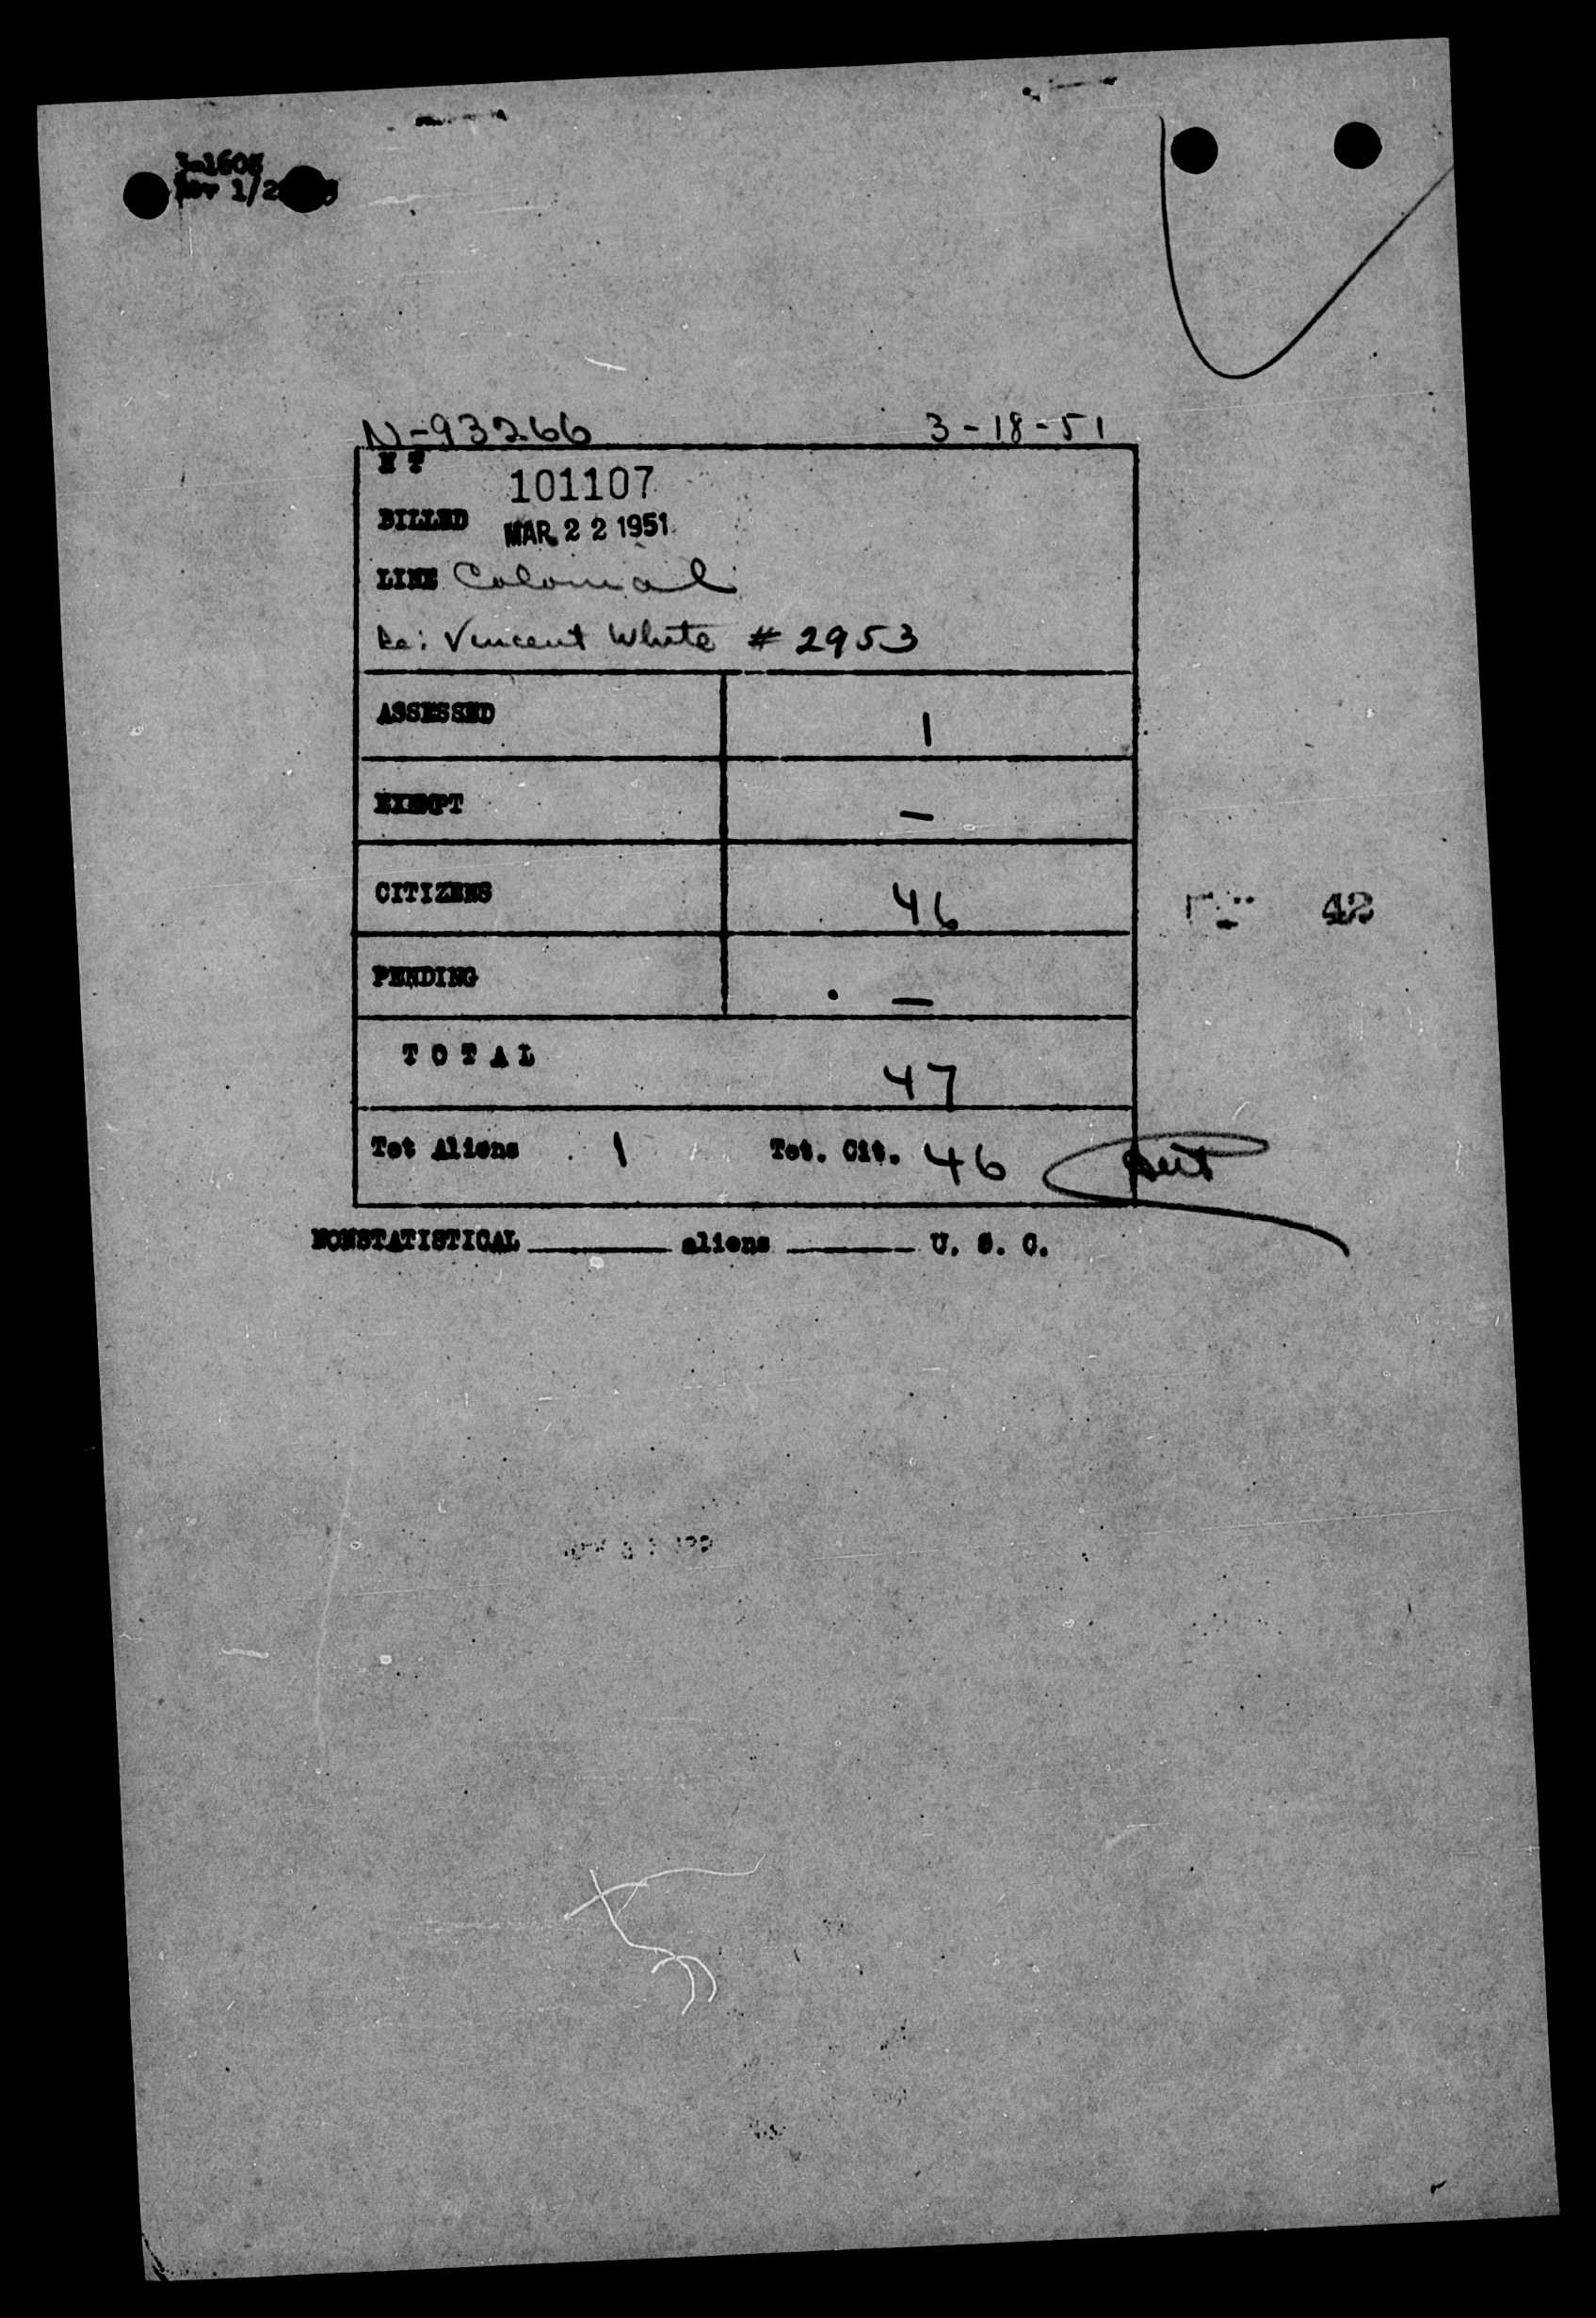 3-1605
Rev 1/2
N-93266 3-18-51
101107
BILLED MAR 22 1951
LINE Colonial
Re: Vincent White # 2953
ASSESSED 1
EXEMPT —
CITIZENS 46
42
PENDING —
TOTAL 47
Tot Aliens 1 Tot. Cit. 46
NONSTATISTICAL ______ aliens ______ U. S. C.